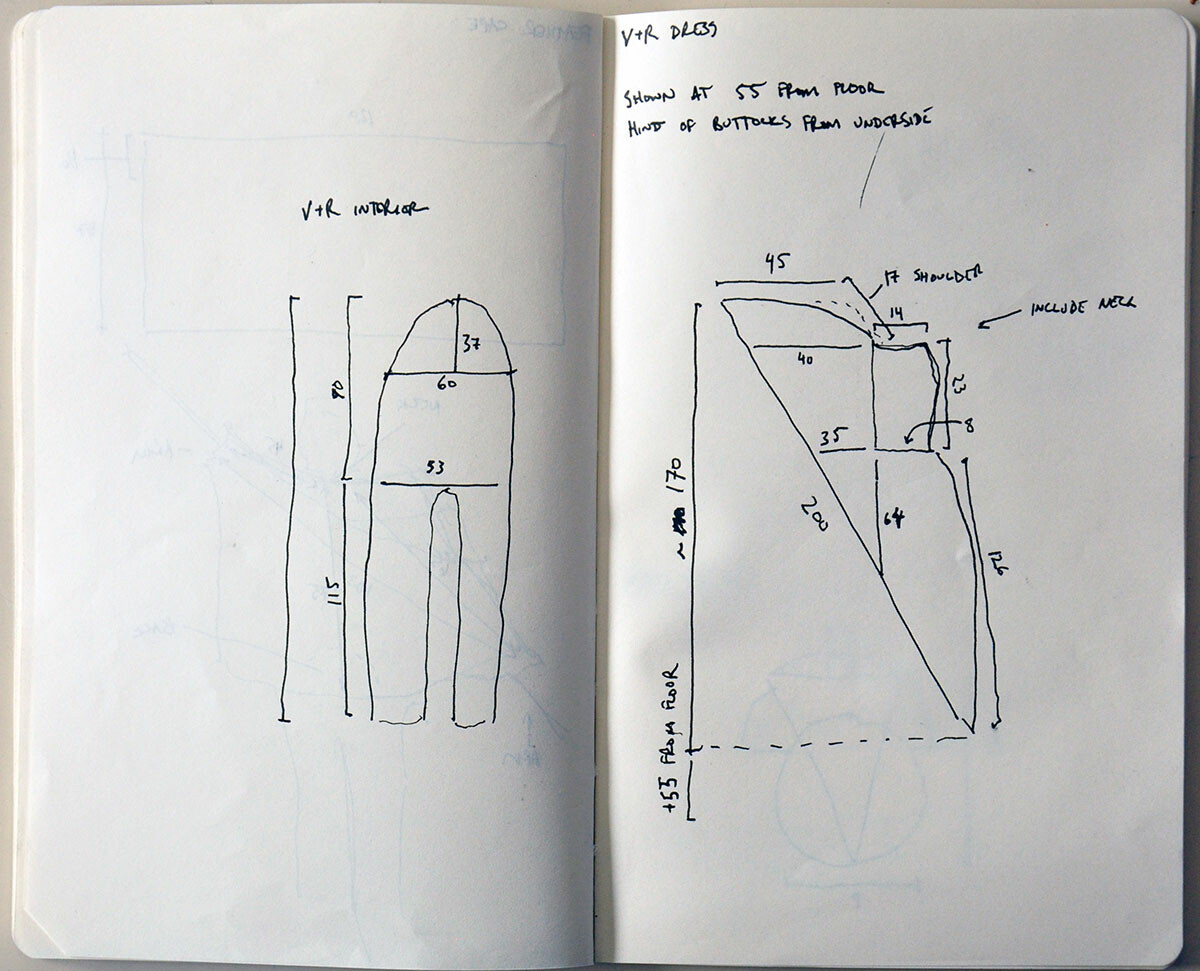 V+R INTERIOR
37
60
90
53
115
V+R DRESS
SHOWN AT 55 FROM FLOOR
HINT OF BUTTOCKS FROM UNDERSIDE
45
17 SHOULDER
14
INCLUDE NECK
40
23
8
35
~ 170
200
64
126
+55 FROM FLOOR